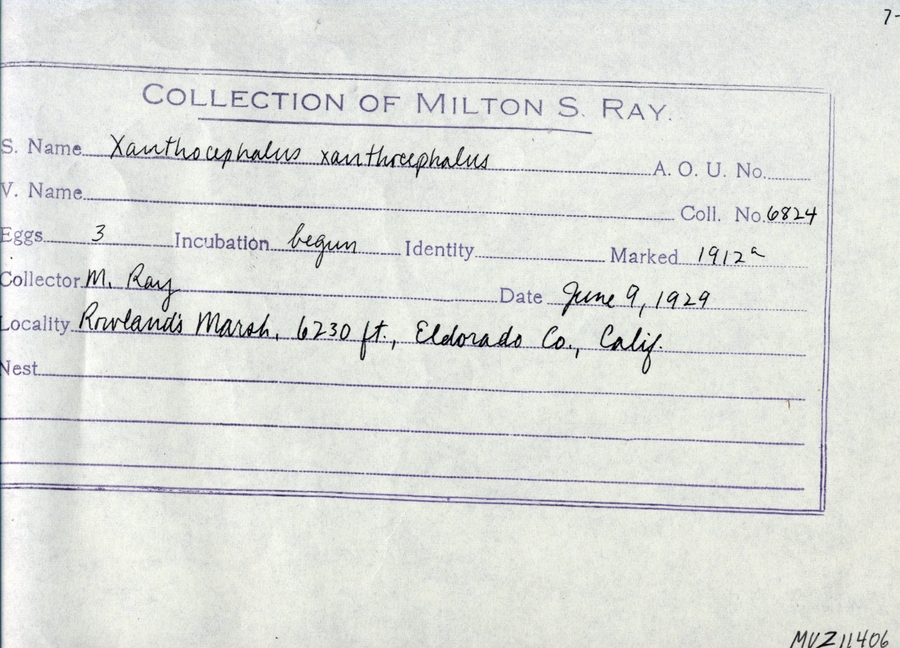 7-
COLLECTION OF MILTON S. RAY.
S. Name Xanthocephalus xanthocephalus A. O. U. No.
V. Name Coll. No. 6824
Eggs 3 Incubation begun Identity Marked 1912a
Collector M. Ray Date June 9, 1929
Locality Rowland's Marsh, 6230 ft., Eldorado Co., Calif.
Nest
MVZ11406